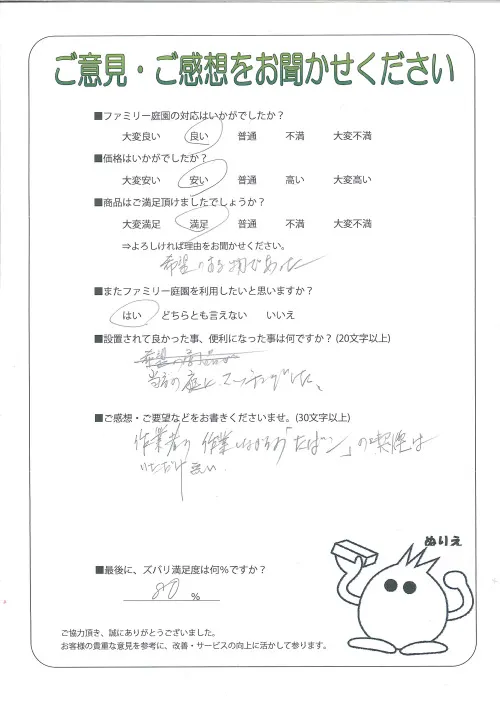 ご意見・ご感想をお聞かせください
■ファミリー庭園の対応はいかがでしたか？
大変良い 良い 普通 不満 大変不満
■価格はいかがでしたか？
大変安い 安い 普通 高い 大変高い
■商品はご満足頂けましたでしょうか？
大変満足 満足 普通 不満 大変不満
⇒よろしければ理由をお聞かせください。
希望する物があった
■またファミリー庭園を利用したいと思いますか？
はい どちらとも言えない いいえ
■設置されて良かった事、便利になった事は何ですか？(20文字以上)
希望の商品が
当方の庭にマッチングした。
■ご感想・ご要望などをお書きくださいませ。(30文字以上)
作業者の作業しながらの「たばこ」の喫煙は
いただけない
ぬりえ
■最後に、ズバリ満足度は何％ですか？
80 ％
ご協力頂き、誠にありがとうございました。
お客様の貴重な意見を参考に、改善・サービスの向上に活かして参ります。